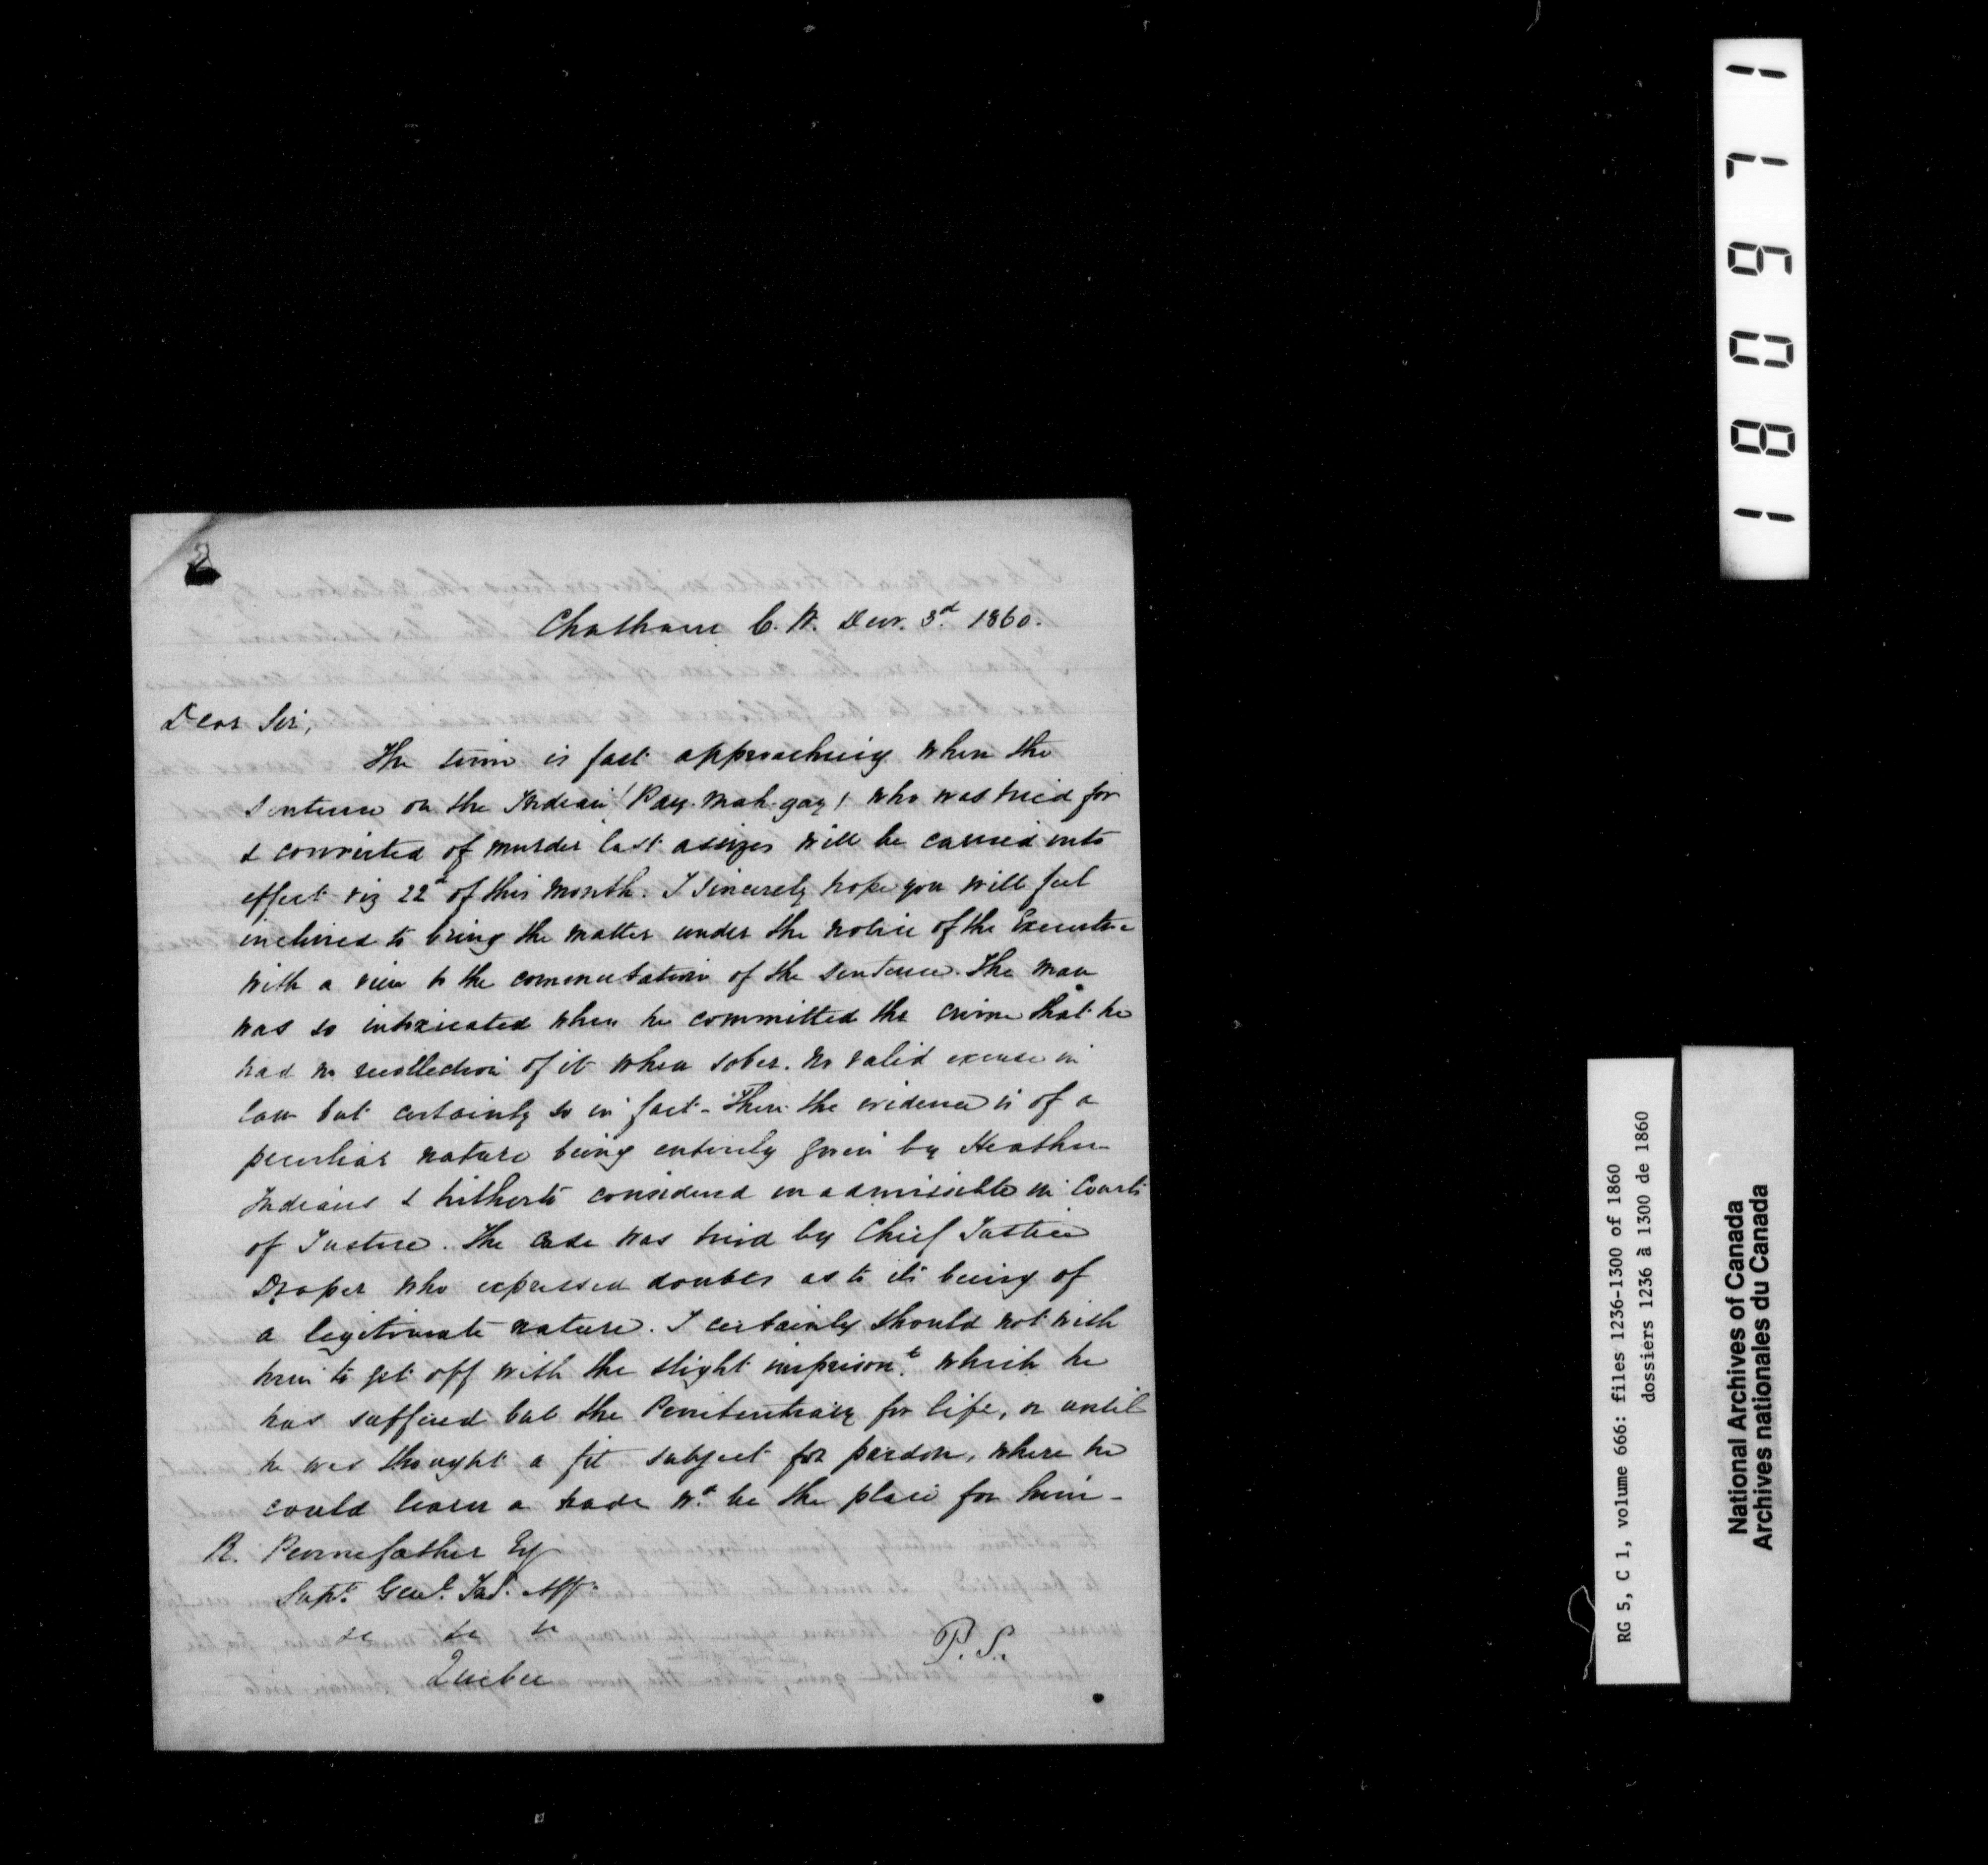 Chatham C. W. Decr. 3.d 1860.
Dear Sir,
The time is fast approaching when the
sentence on the Indian (Pay-mah-gay) who was tried for
& convicted of murder last assizes will be carried into
effect viz 22d of this month. I sincerely hope you will feel
inclined to bring the matter under the notice of the Executive
with a view to the commutation of the sentence. The man
was so intoxicated when he committed the crime that he
had no recollection of it when sober. No valid excuse in
law but certainly so in fact - Then the evidence is of a
peculiar nature being entirely given by Heathen
Indians & hitherto considered inadmissible in Courts
of Justice. The case was tried by Chief Justice
Draper who expressed doubts as to its being of
a legitimate nature. I certainly should not wish
him to get off with the slight imprison.t which he
has suffered but the Penitentiary for life, or until
he was thought a fit subject for pardon, where he
could learn a trade w.d be the place for him -
R. Pennefather Esq
Supt. Genl. Ind. Aff.
&c &c &c
Quebec
P.S.
180971
RG 5, C 1, volume 666: files 1236-1300 of 1860
dossiers 1236 à 1300 de 1860
National Archives of Canada
Archives nationales du Canada